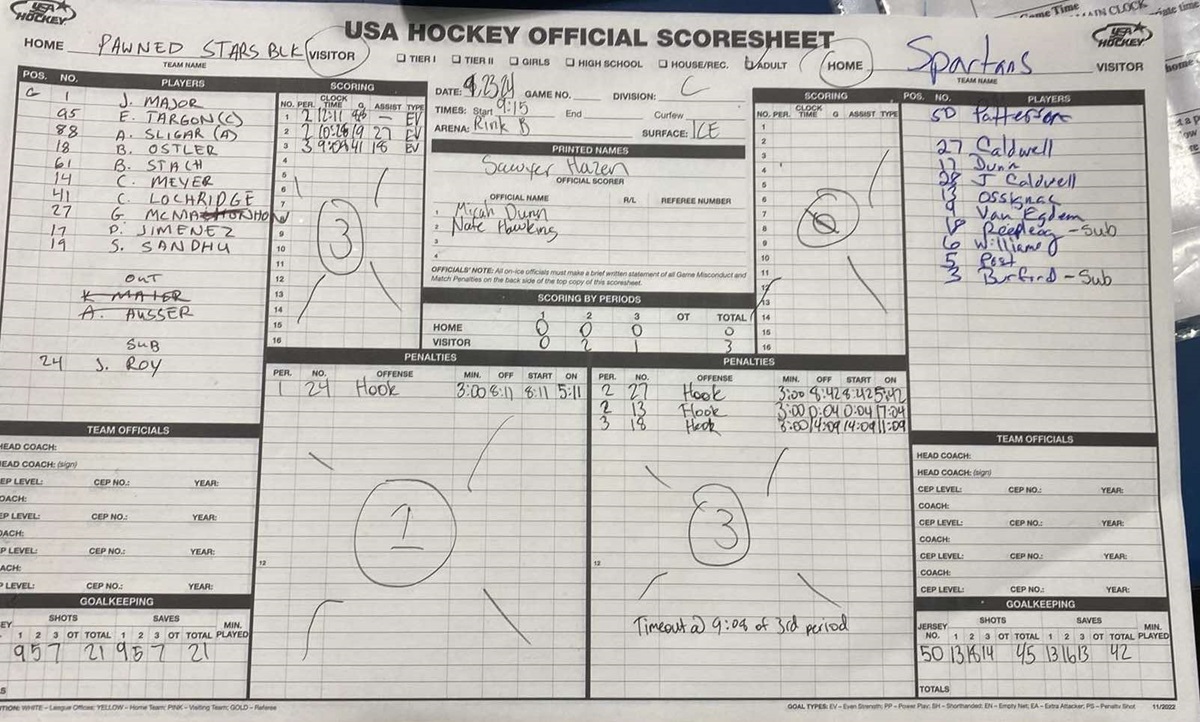 USA HOCKEY
USA HOCKEY OFFICIAL SCORESHEET
Game Time
MAIN CLOCK
USA HOCKEY
HOME PAWNED STARS BLK VISITOR
TEAM NAME
TIER I TIER II GIRLS HIGH SCHOOL HOUSE/REC. ADULT
HOME Spartans VISITOR
TEAM NAME
POS. NO. PLAYERS
G 1 J. MAJOR
95 E. TARGON (C)
88 A. SLIGAR (A)
18 B. OSTLER
61 B. STACH
14 C. MEYER
41 C. LOCHRIDGE
27 G. MCMAHON
17 P. JIMENEZ
19 S. SANDHU
OUT
K MAIER
A. AUSSER
SUB
24 J. ROY
SCORING
NO. PER. CLOCK TIME G ASSIST TYPE
1 2 12:11 — EV
2 2 19 27 EV
3 3 9:09 41 18 EV
4
5
6
7
8
9
10
11
12
13
14
15
16
3
DATE: 9,23,24 GAME NO. DIVISION: C
TIMES: Start 9:15 End Curfew
ARENA: Rink B SURFACE: ICE
PRINTED NAMES
Sawyer Hazen
OFFICIAL SCORER
OFFICIAL NAME R/L REFEREE NUMBER
1 Micah Dunn
2 Nate Hawking
3
4
OFFICIALS' NOTE: All on-ice officials must make a brief written statement of all Game Misconduct and
Match Penalties on the back side of the top copy of this scoresheet.
SCORING BY PERIODS
1 2 3 OT TOTAL
HOME 0 0 0 0
VISITOR 0 2 1 3
SCORING
NO. PER. CLOCK TIME G ASSIST TYPE
1
2
3
4
5
6
7
8
9
10
11
12
13
14
15
16
POS. NO. PLAYERS
50 Patterson
27 Caldwell
17 Dunn
28 J Caldwell
13 Ossignac
9 Van Egdem
18 - Sub
6 Williams
5 Post
3 Burford - Sub
PENALTIES
PER. NO. OFFENSE MIN. OFF START ON
1 24 Hook 3:00 8:11 8:11 5:11
1
12
PENALTIES
PER. NO. OFFENSE MIN. OFF START ON
2 27 Hook 3:00 8:42 8:42 5:42
2 13 Hook 3:00 0:04 0:04 17:04
3 18 Hook 3:00 14:09 14:09 11:09
3
12
Timeout @ 9:08 of 3rd period
TEAM OFFICIALS
HEAD COACH:
HEAD COACH: (sign)
CEP LEVEL: CEP NO.: YEAR:
COACH:
EP LEVEL: CEP NO.: YEAR:
OACH:
EP LEVEL: CEP NO.: YEAR:
ACH:
P LEVEL: CEP NO.: YEAR:
GOALKEEPING
EY SHOTS SAVES MIN. PLAYED
1 2 3 OT TOTAL 1 2 3 OT TOTAL
9 5 7 21 9 5 7 21
TEAM OFFICIALS
HEAD COACH:
HEAD COACH: (sign)
CEP LEVEL: CEP NO.: YEAR:
COACH:
CEP LEVEL: CEP NO.: YEAR:
COACH:
CEP LEVEL: CEP NO.: YEAR:
COACH:
CEP LEVEL: CEP NO.: YEAR:
GOALKEEPING
JERSEY NO. SHOTS SAVES MIN. PLAYED
1 2 3 OT TOTAL 1 2 3 OT TOTAL
50 13 18 14 45 13 16 13 42
TOTALS
TION: WHITE – League Offices; YELLOW – Home Team; PINK – Visiting Team; GOLD – Referee
GOAL TYPES: EV – Even Strength; PP – Power Play; SH – Shorthanded; EN – Empty Net; EA – Extra Attacker; PS – Penalty Shot 11/2022